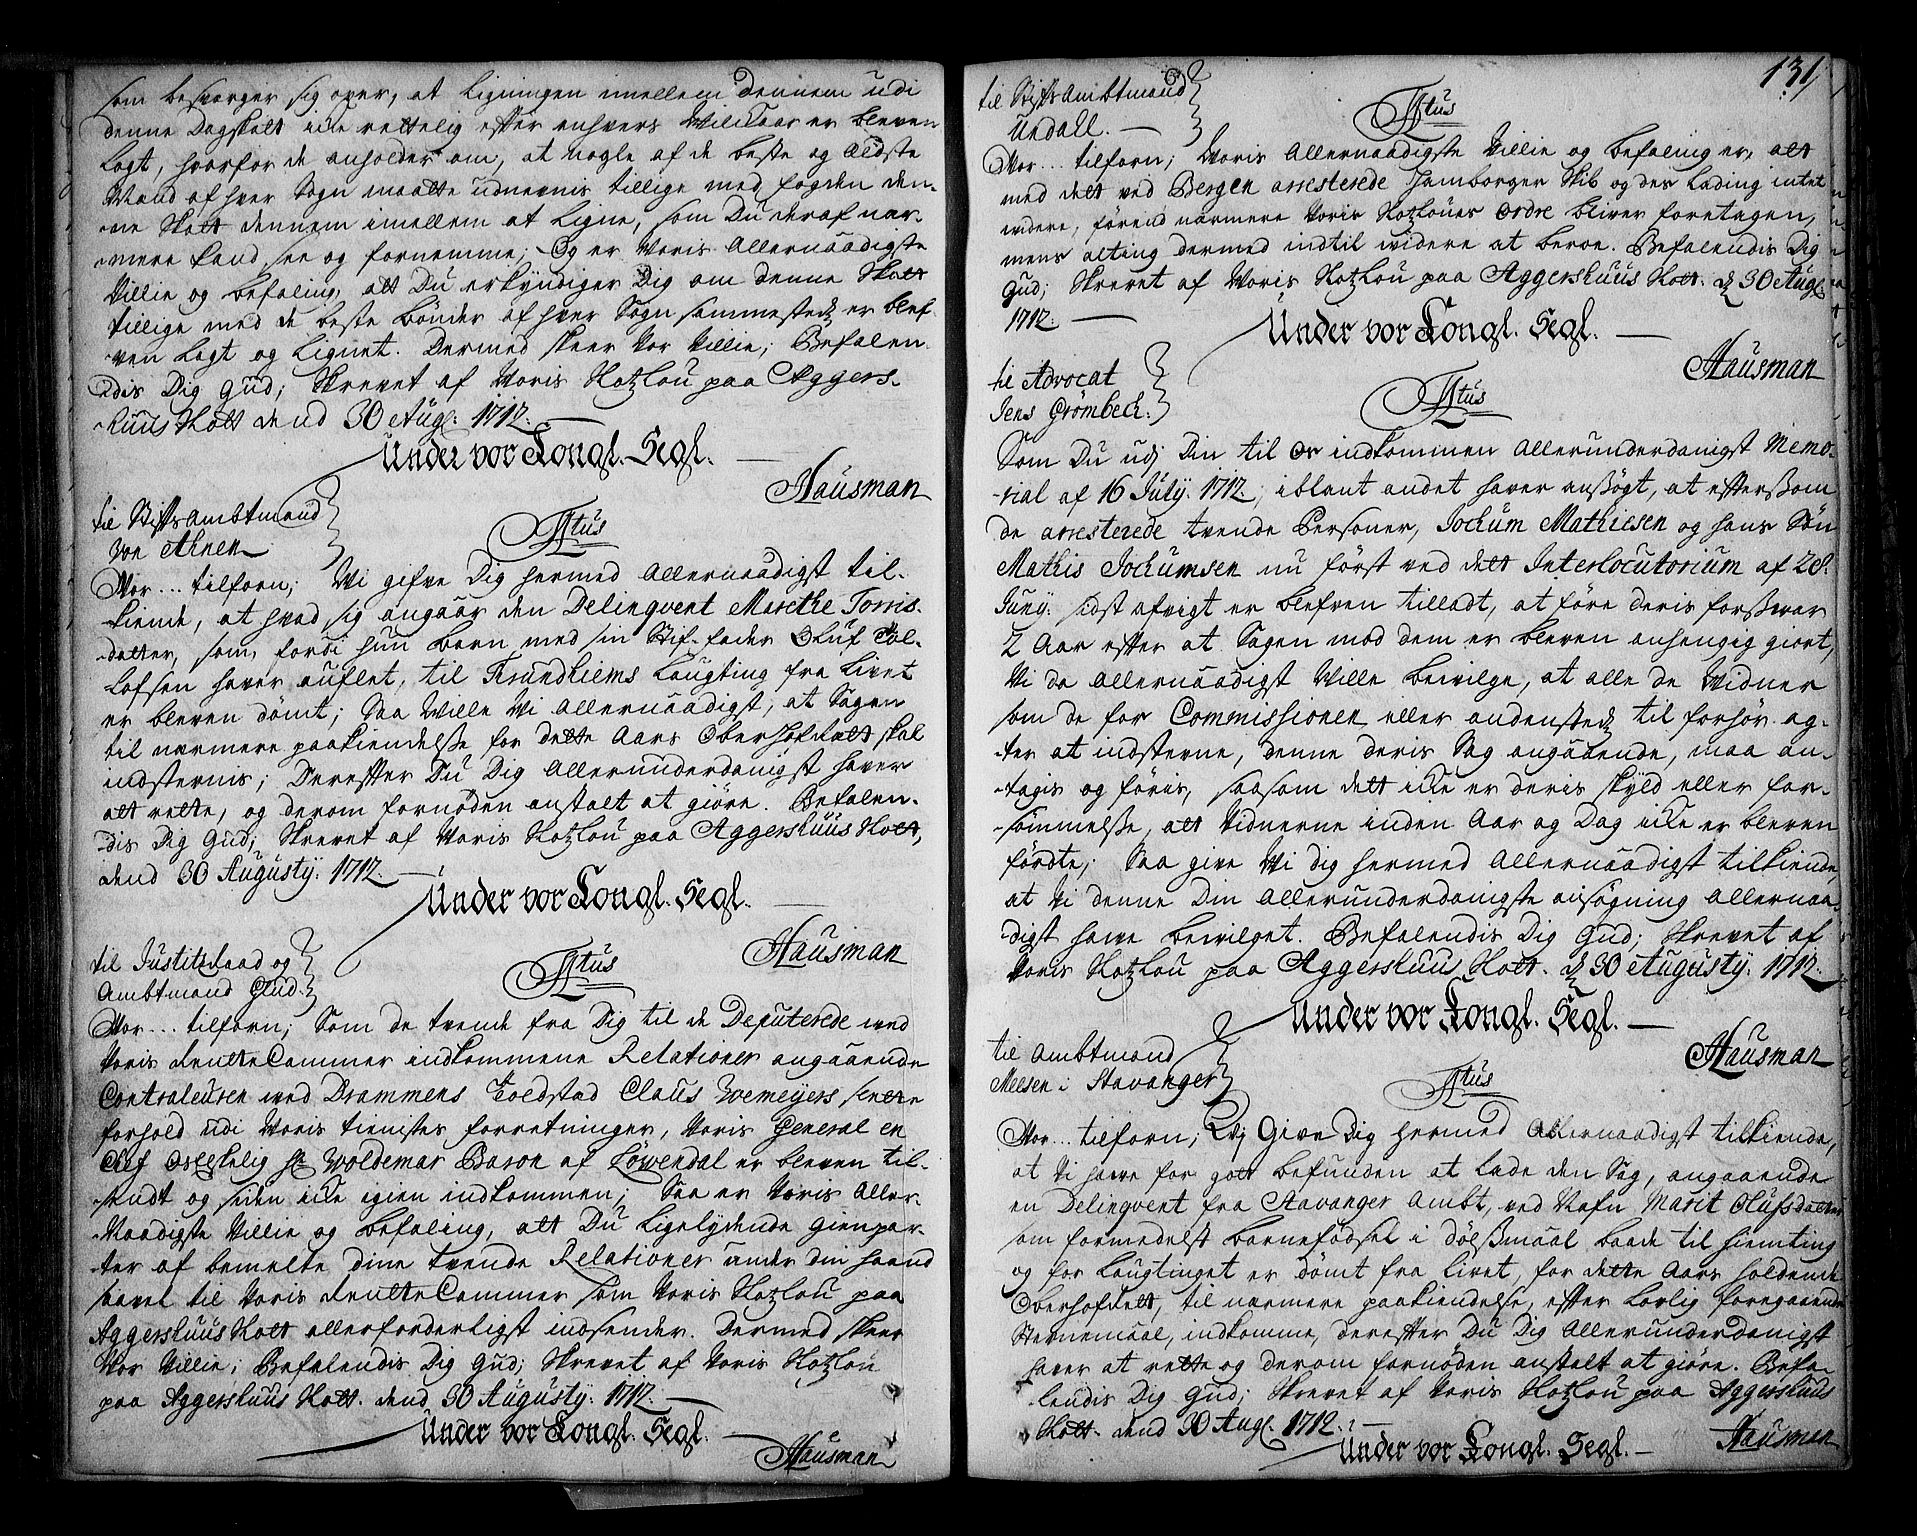 som besvärger sig over, at Ligningen imellem Dennem udi
denne Dagskatt icke rettelig efter enhvers Vilckaar er bleven
Lagt, hvorfor de anholder om, at nogle af de beste og Eldste
Mænd af hver Sogn maatte udnevnis tillige med fogden den-
-ne Skatt dennem imellem at Ligne, som Du deraf nær-
-mere kand see og fornemme; Og er Voris Allernaadigste
Villie og befaling, att Du erkyndiger Dig om denne Skatt
tillige med de beste bönder af hver Sogn sammestedz er blef-
-ven Lagt og Lignet. Dermed skeer Vor Villie; Befalen-
-dis Dig Gud; Skrevet af Voris Slotzlou paa Aggers-
-huus Slott dend 30 Augl. 1712.
Under vor Kongl. Segl.
Hausman
til StiftsAmbtmand
von Ahnen
Ttus
Vor... tilforn; Vi gifve Dig hermed Allernaadigst til-
-kiende, at hvad sig angaar den Delinqvent Marethe Torris-
-datter, som, fordi hun barn med sin Stif-fader Oluf Tol-
-Lofsen haver auflet, til Trundhiems Laugting fra Livet
er bleven dömt; Saa Wille Vi Allernaadigst, at Sagen
til nærmere paakiendelsse for dette Aars Oberhofdrett skal
indstefnis; Derefter Du Dig Allerunderdanigst haver
att rette, og derom fornöden anstalt at giöre. Befalen-
-dis Dig Gud; Skrevet af Voris Slotzlou paa Aggershuus Slott,
dend 30 Augusty. 1712.
Under vor Kongl. Segl.
Hausman
til Justitzraad og
Ambtmand Glud.
Ttus
Vor... tilforn; Som de tvende fra Dig til de Deputerede ved
Voris RentteCammer indkommene Relationer angaaende
Contraleuren ved Drammens Toldstad Claus Wemeyers slette
forhold udi Voris tienistes forretninger, Voris General en
Chef Ostetelig Hr Woldemar Baron af Löwendal er bleven til-
-sendt og siden icke igien indkommen; Saa er Voris Aller-
-Naadigste Villie og befaling, att Du Ligelydende gienpar-
-ter af bemelte dine tvende Relationer under din haand
saavel til Voris RentteCammer som Voris Slotzlou paa
Aggershuus Slott allerforderligst indsender. Dermed skeer
Vor Villie; Befalendis Dig Gud; Skrevet af Voris Slotzlou
paa Aggershuus Slott. dend 30 Augusty. 1712.
Under vor Kongl. Segl.
Hausman
131
til StiftsAmbtmand
Undall.
Ttus
Vor... tilforn; Voris Allernaadigste Villie og befaling er, att
med dett ved Bergen arresterede Hamborger Skib og des Lading intet
videre, förend nærmere Voris Slotzloues Ordre bliver foretagen,
mens alting dermed indtil widere at beroe. Befalendis Dig
Gud; Skrevet af Voris Slotzlou paa Aggershuus Slott. d 30 Augl.
1712.
Under vor Kongl. Segl.
Hausman
til Advocat
Jens Grömbech.
Ttus
Som Du udj Din til Os indkommen Allerunderdanigst Memo-
-rial af 16 July. 1712; iblant andet haver ansögt, at eftersom
de arresterede tvende Personer, Jochum Mathiesen og hans Sön
Mathis Jochumsen nu först ved dett Interlocutorium af 28.
Juny. sidst afvigt er blefven tilladt, at före deris forsvar
2 Aar efter at Sagen mod dem er bleven anhengig giort,
Vi da Allernaadigst Wille beivilge, at alle de Vidner
som de for Commissionen eller andenstedz til forhör ag-
-ter at indsterne, denne deris Sag angaaende, maa an-
-tagis og föris, saasom dett icke er deris skyld eller for-
-sömmelse, att Vidnerne inden Aar og Dag icke er bleven
fördte; Saa give Vi dig hermed Allernaadigst tilkiende,
at Vi denne Din Allerunderdanigste ansögning Allernaa-
-digst have beivilget. Befalendis Dig Gud; Skrevet af
Voris Slotzlou paa Aggershuus Slott. d 30 Augusty. 1712.
Under vor Kongl. Segl.
Hausman
til Ambtmand
Meesen i Stavanger
Ttus
Vor... tilforn; Vj Give Dig hermed Allernaadigst tilkiende,
at Vi have for gott befunden at Lade den Sag, angaaende
en Delinqvent fra Stavanger Ambt, ved Nafn Marit Olufsdatter
som formedelst barnefödsel i dölsmaal baade til hiemting
og for Laugtinget er dömt fra Livet, for dette Aars holdende
Oberhofdrett, til nærmere paakiendelse, efter Lovlig foregaaende
Stefnemaal, indkomme, derefter Du Dig Allerunderdanigst
haver at rette og derom fornöden anstalt at giöre. Befa-
-lendis Dig Gud; Skrevet af Voris Slotzlou paa Aggershuus
Slott. dend 30 Augl. 1712.
Under vor Kongl. Segl.
Hausman